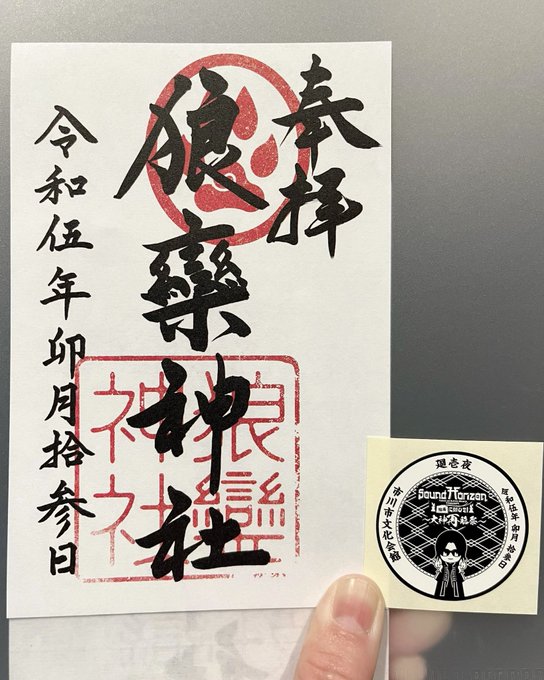 奉拝
狼欒神社
令和伍年卯月拾参日
狼欒
神社
廻壱夜
Sound Horizon
～大神再臨祭～
市川市文化会館
令和伍年 卯月 拾参日